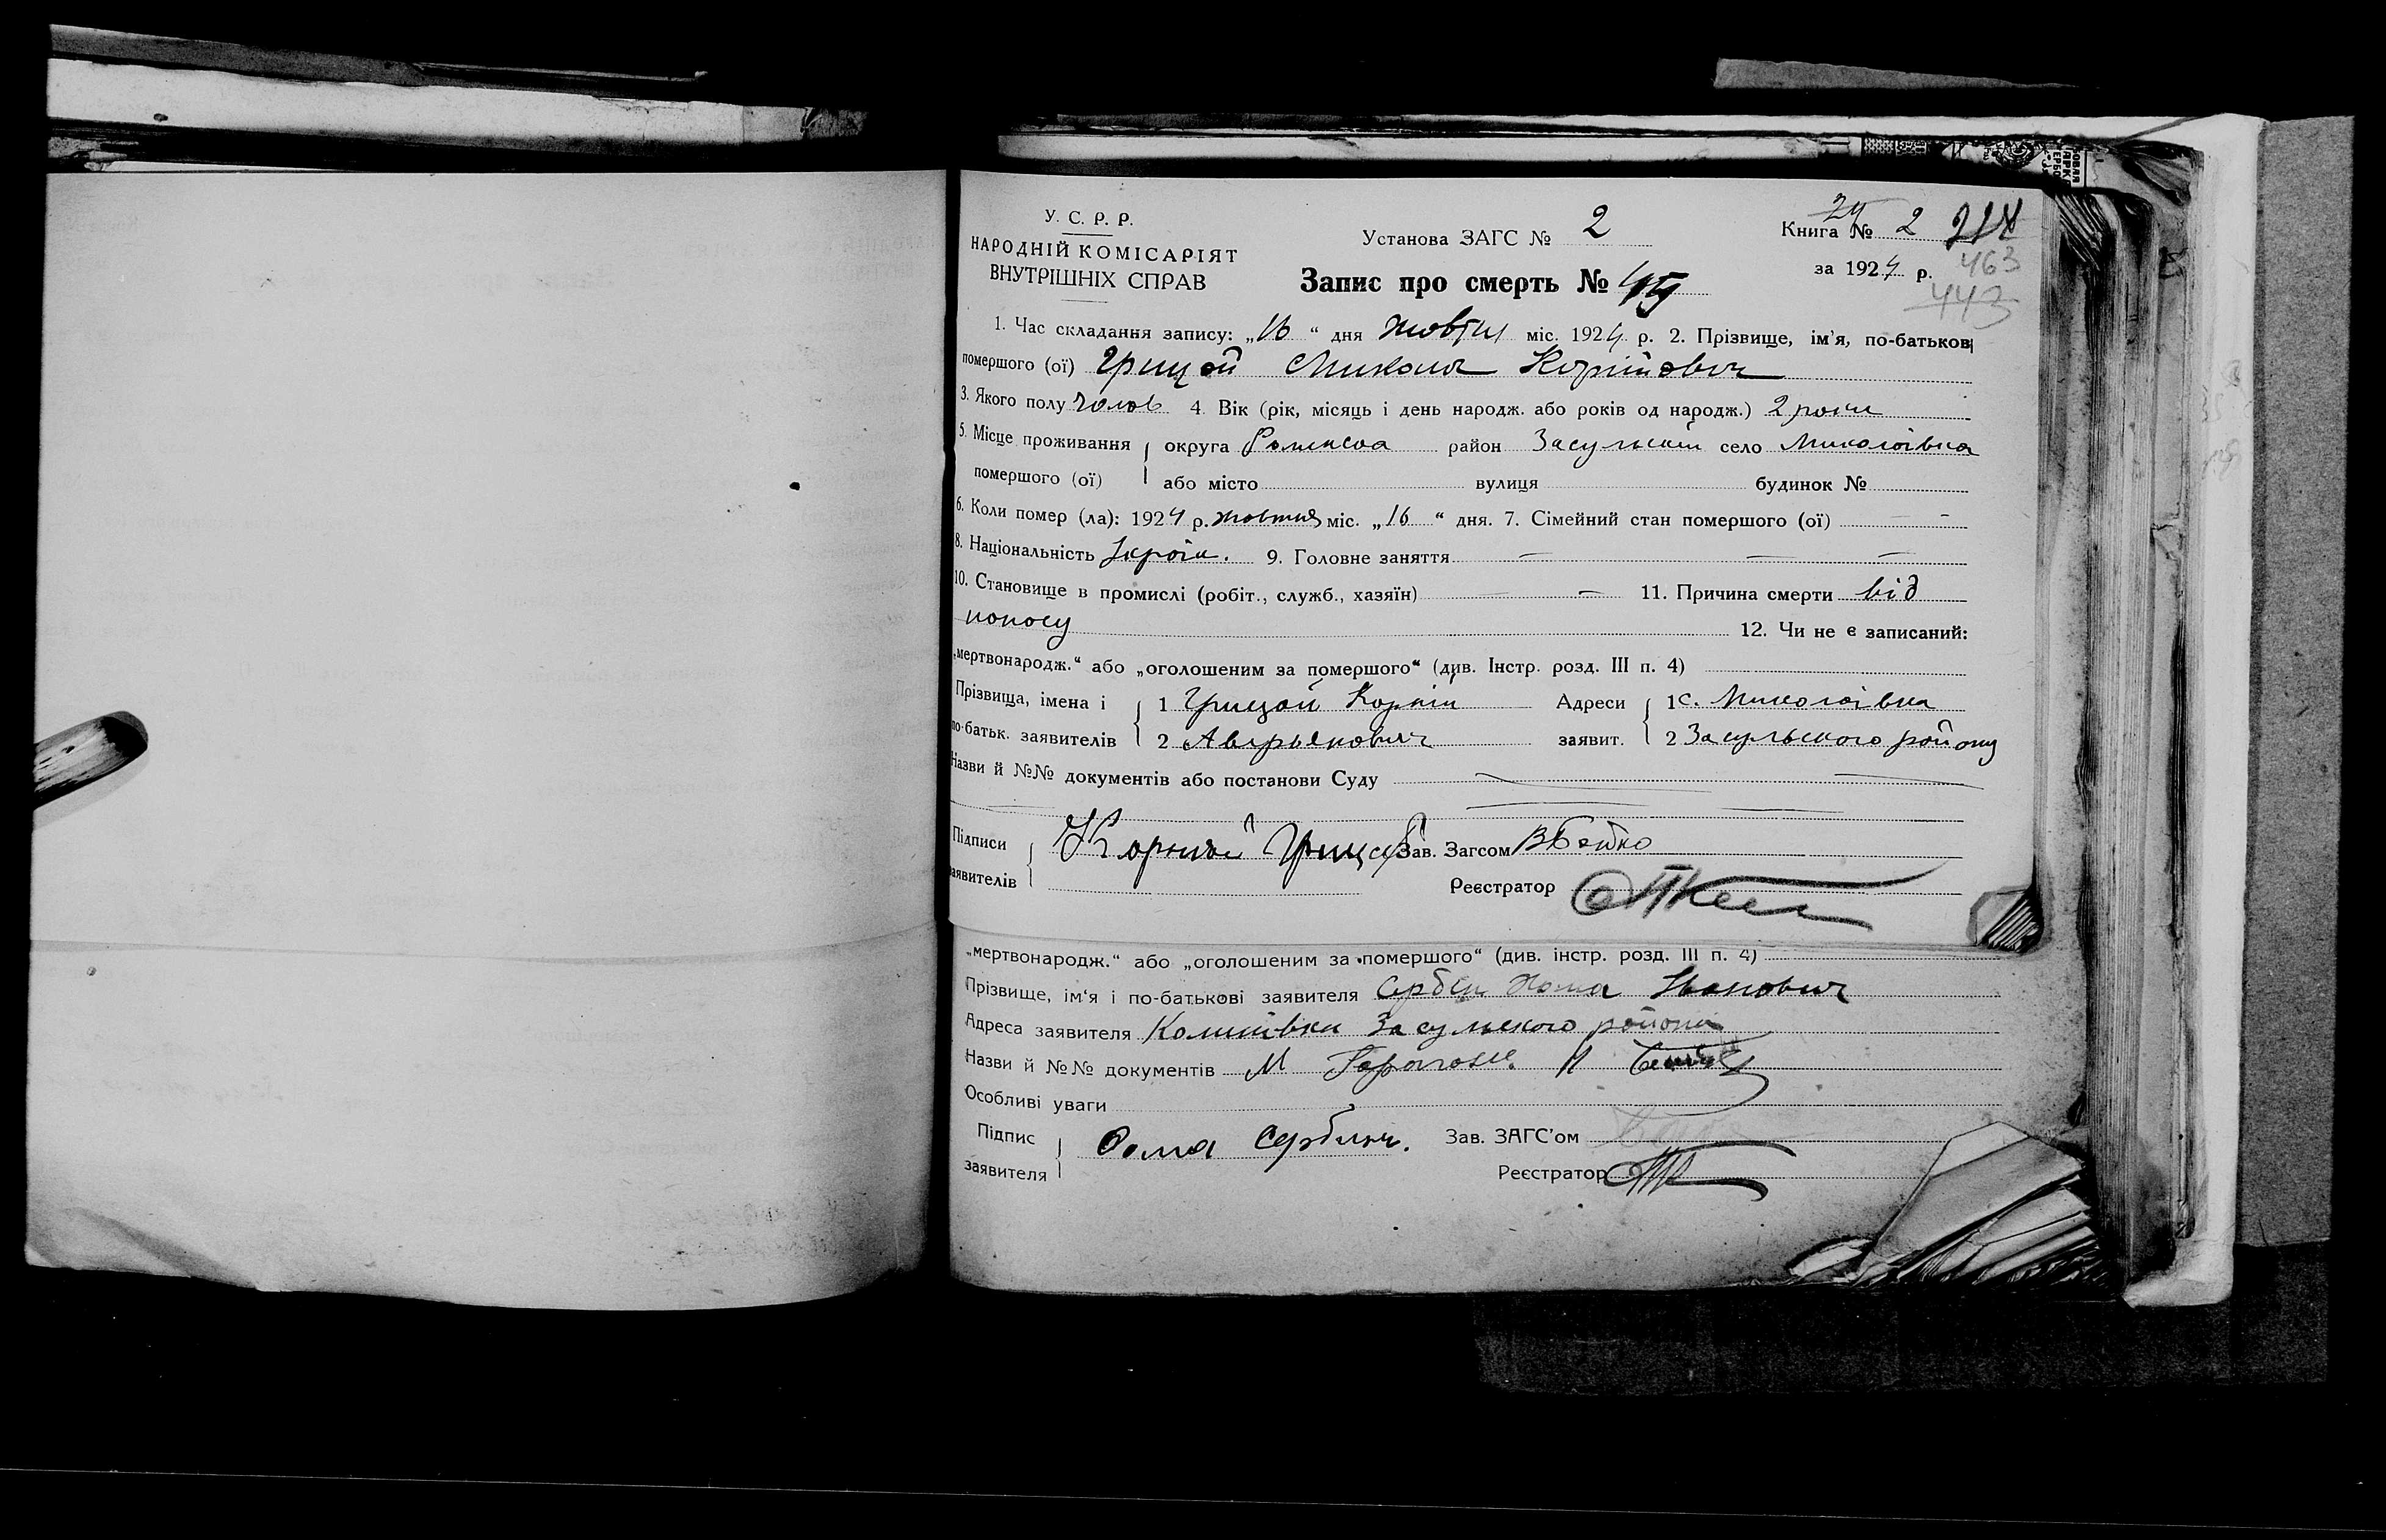 У. С. Р. Р.
НАРОДНІЙ КОМІСАРІЯТ
ВНУТРІШНІХ СПРАВ
Установа ЗАГС № 2
Книга № 2
за 1924 р.
463
443
Запис про смерть №
1. Час складання запису: „16“ дня жовтня міс. 1924 р. 2. Прізвище, ім'я, по-батькові
помершого (ої) Грицай Микола Корнійович
3. Якого полу чолов 4. Вік (рік, місяць і день народж. або років од народж.) 2 роки
5. Місце проживання округа Роменська район Засульский село Миколаівка
помершого (ої) або місто вулиця будинок №
6. Коли помер (ла): 1924 р. жовтня міс. „16“ дня. 7. Сімейний стан помершого (ої) — -
8. Національність Україн. 9. Головне заняття — — —
10. Становище в промислі (робіт., служб., хазяїн) — — 11. Причина смерти від
поносу 12. Чи не є записаний:
„мертвонародж.“ або „оголошеним за помершого“ (див. Інстр. розд. III п. 4)
Прізвища, імена і 1 Грицай Корній Адреси 1 с. Миколаівка
по-батьк. заявителів 2 Аверьянович заявит. 2 Засульського району
Назви й №№ документів або постанови Суду
Підписи Корний Грицай Зав. Загсом
заявителів Реєстратор
„мертвонародж.“ або „оголошеним за помершого“ (див. інстр. розд. III п. 4)
Прізвище, ім'я і по-батькові заявителя Сербин Хома Іванович
Адреса заявителя Засульского района
Назви й №№ документів
Особливі уваги
Підпис Фома Сербин. Зав. ЗАГС'ом
заявителя Реєстратор